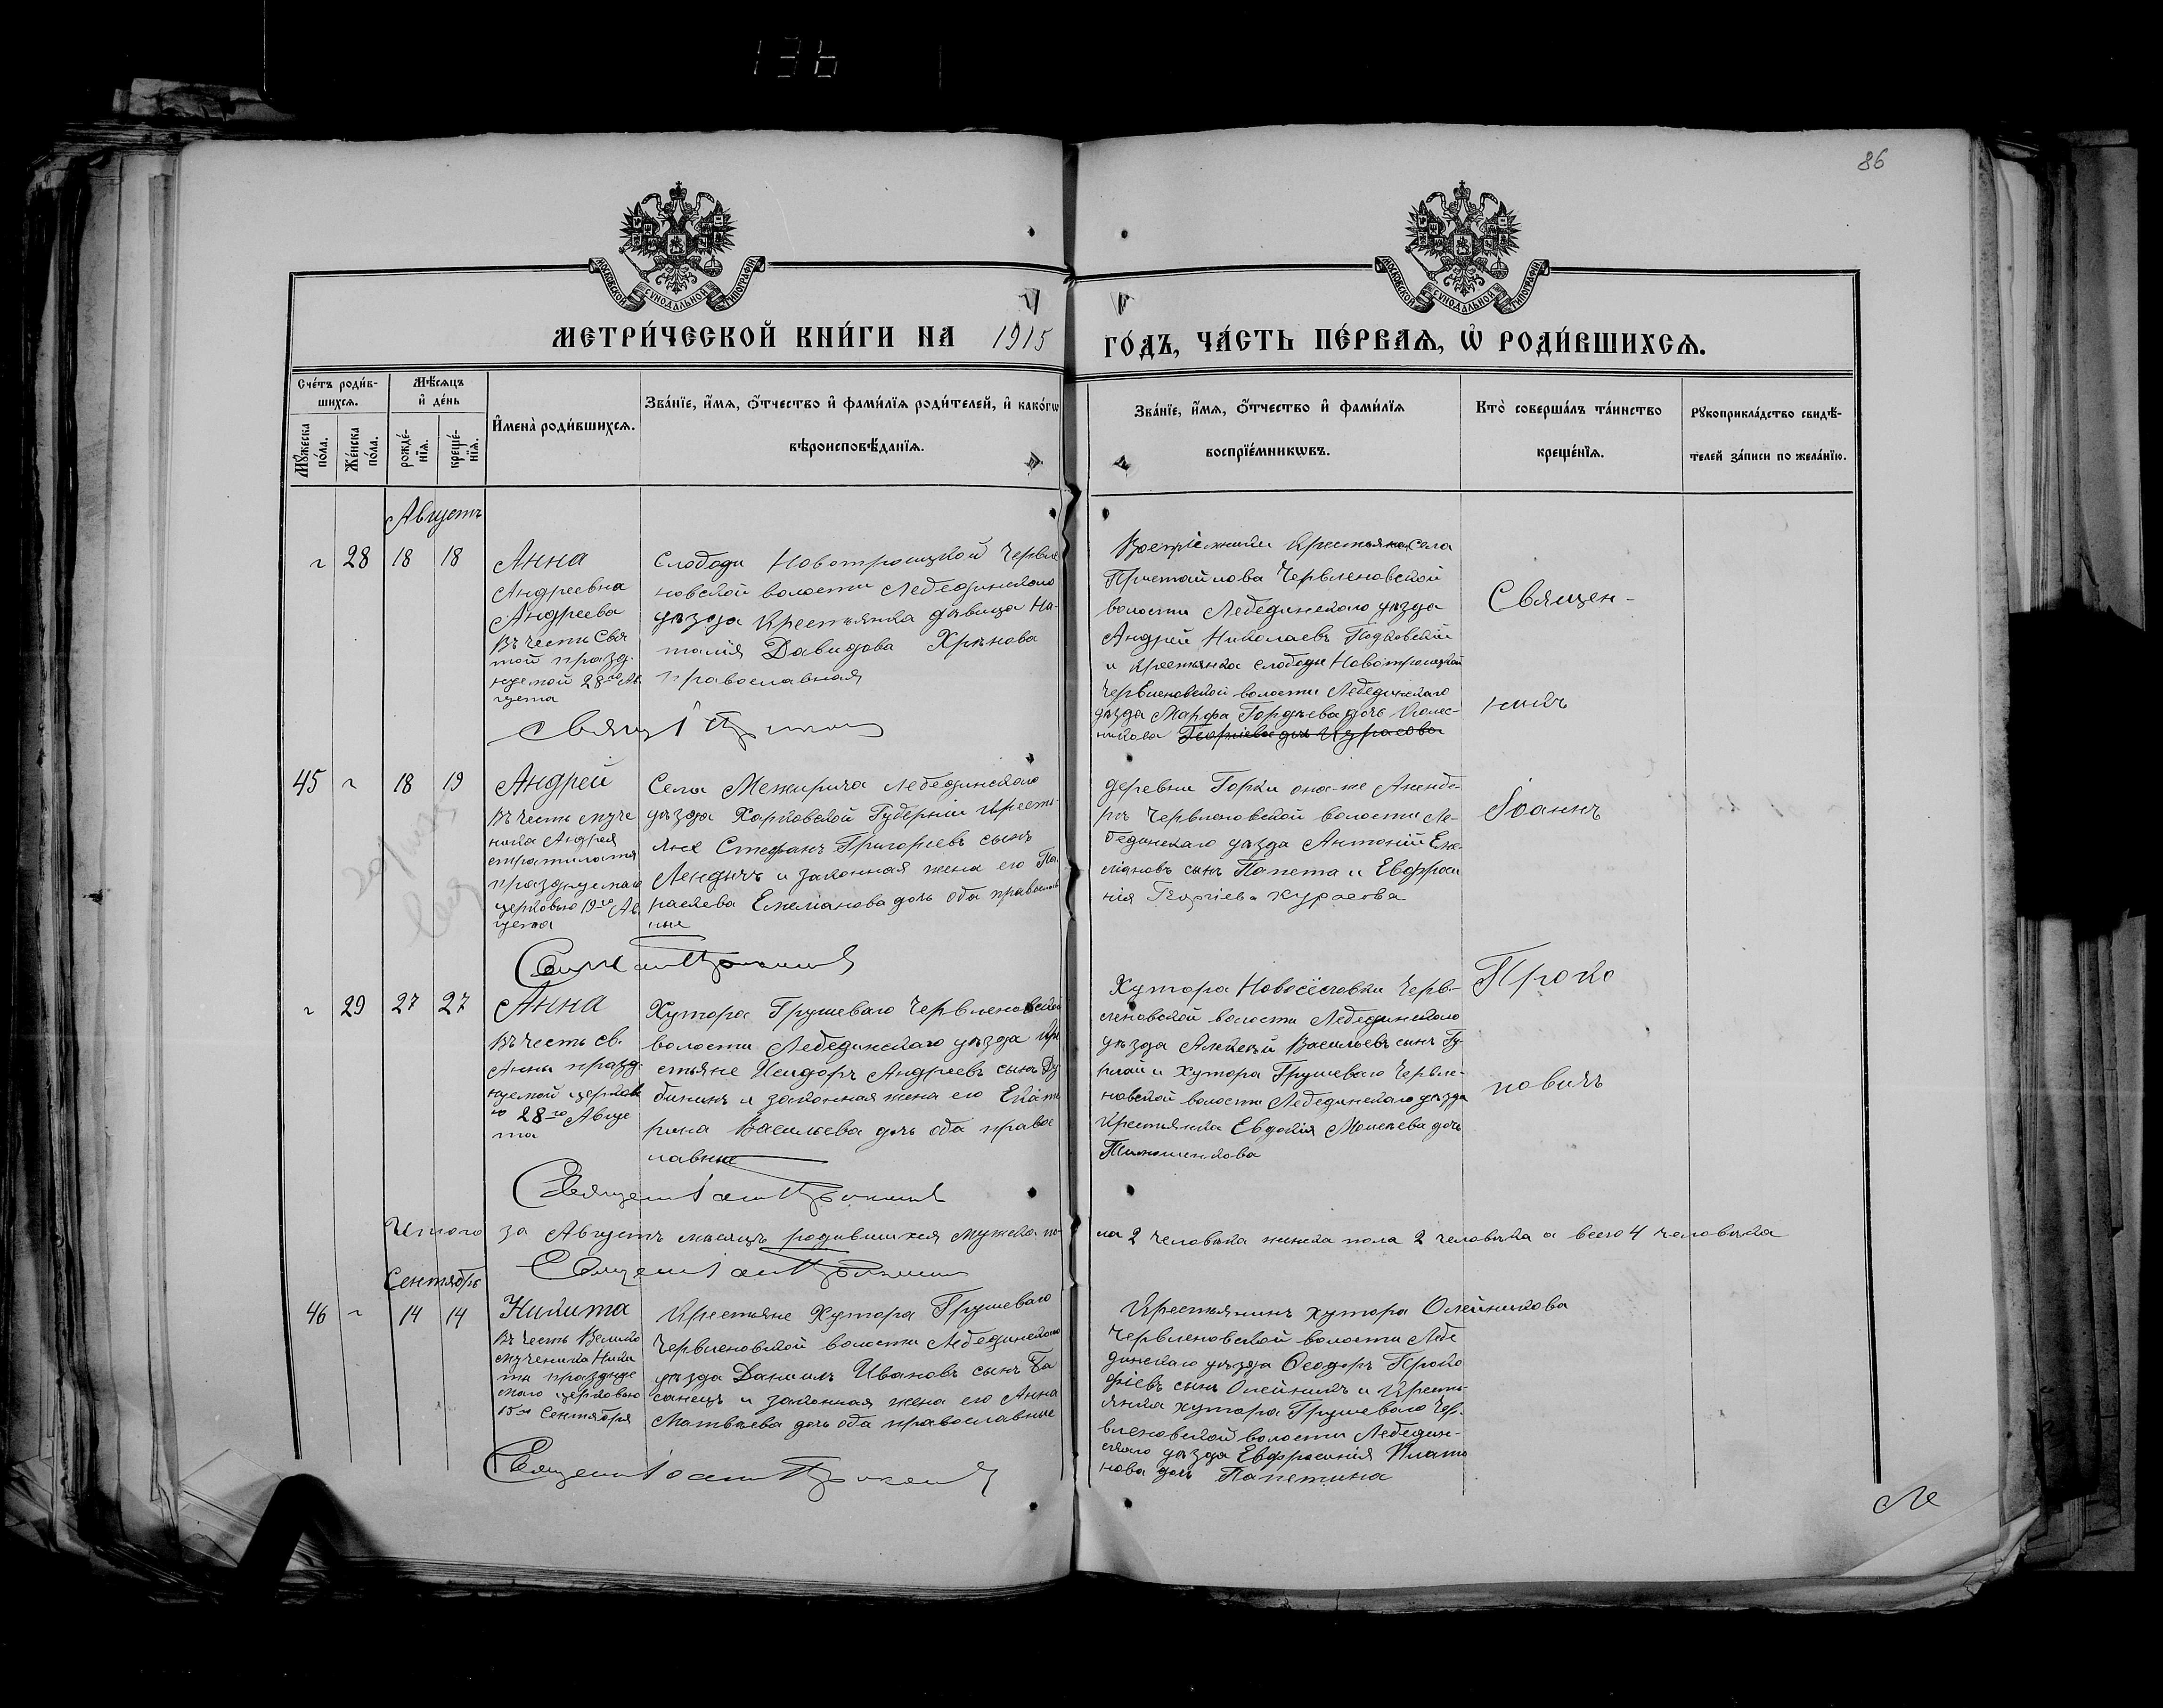 136
86
МОСКОВСКОЙ СѴНОДАЛЬНОЙ ТИПОГРАФІИ
МОСКОВСКОЙ СѴНОДАЛЬНОЙ ТИПОГРАФІИ
МЕТРИ́ЧЕСКОЙ КНИ́ГИ НА 1915
ГО́ДЪ, ЧА́СТЬ ПЕ́РВАѦ, Ѡ РОДИ́ВШИХСѦ.
Сче́тъ роди́в-
шихсѧ.
Мѣ́сѧцъ
и де́нь
Мꙋ́жеска
по́ла.
Же́нска
по́ла.
рожде́-
нїѧ.
креще́-
нїѧ.
Имена̀ роди́вшихсѧ.
Зва́нїе, и́мѧ, о́тчество и фами́лїѧ роди́телей, и како́гѡ
вѣроисповѣ́данїѧ.
Зва́нїе, и́мѧ, о́тчество и фами́лїѧ
воспрїе́мникѡвъ.
Кто̀ соверша́лъ та́инство
креще́нїѧ.
Рꙋкоприкла́дство свидѣ́-
телей за́писи по жела́нїю.
Августъ
28 18 18
Анна
Андреевна
Андреева
Въ честь Свя
той празд-
нуемой 28го Ав
густа
Слободы Новотроицкой Червле
новской волости Лебединскаго
уѣзда Крестьянка дѣвица На-
талія Давидова Хрѣнова
православная
Воспріемники Крестьянинъ села
Пристайлова Червленовской
волости Лебединскаго уѣзда
Андрей Николаевъ
и Крестьянка слободы Новотроицкой
Червленовской волости Лебединскаго
уѣзда Марфа Гордѣева дочь Колес-
никова Георгіева дочь Курасова
Священ-
никъ
45 18 19
Андрей
Въ честь муче
ника Андрея
стратилата
празднуемаго
церковью 19го Ав
густа
Села Межирича Лебединскаго
уѣзда Харьковской Губерніи Кресть-
яне Стефанъ Григорьевъ сынъ
и законная жена его Па
раскева Емеліанова дочь оба православ
ные
деревни Горки она-же
Червленовской волости Ле-
бединскаго уѣзда Антоній Еме-
ліановъ сынъ Папета и Евфроси
нія Георгіева Курасова
Іоаннъ
29 27 27
Анна
Въ честь св.
Анны празд-
нуемой церков
ю 28го Авгус
та
Хутора Грушеваго Червленовской
волости Лебединскаго уѣзда Кре
стьяне Исидоръ Андреевъ сынъ Ду
бининъ и законная жена его Екате
рина Васильева дочь оба правос
лавные
Хутора Новосёловки Черв-
леновской волости Лебединскаго
уѣзда Алексѣй Васильевъ сынъ
и хутора Грушеваго Червле-
новской волости Лебединскаго уѣзда
Крестьянка Евдокія Моисеева дочь
Тимошенкова
Проко
повичъ
Итого за Августъ мѣсяцъ родившихся мужеска по-
ла 2 человѣка женска пола 2 человѣка а всего 4 человѣка
Сентябрь
46 14 14
Никита
Въ честь Велико
мученика Ники
ты празднуе
маго церковью
15го Сентября
Крестьяне Хутора Грушеваго
Червленовской волости Лебединскаго
уѣзда Даніилъ Ивановъ сынъ Ба
санецъ и законная жена его Анна
Матвѣева дочь оба православные
Крестьянинъ хутора Олейникова
Червленовской волости Лебе
динскаго уѣзда Ѳеодоръ Проко
фіевъ сынъ Олейникъ и Кресть-
янка хутора Грушеваго Чер-
вленовской волости Лебедин-
скаго уѣзда Евфросинія Плато
нова дочь Папетина